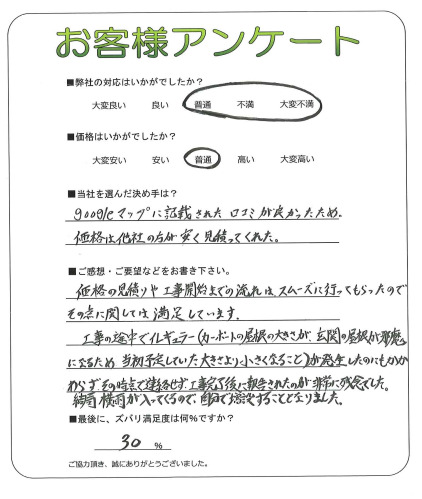 お客様アンケート
■弊社の対応はいかがでしたか？
大変良い 良い 普通 不満 大変不満
■価格はいかがでしたか？
大変安い 安い 普通 高い 大変高い
■当社を選んだ決め手は？
googleマップに記載された 口コミが良かったため.
価格は他社の方が安く見積ってくれた。
■ご感想・ご要望などをお書き下さい。
価格の見積りや工事開始までの流れは、スムーズに行ってもらったので
その点に関しては満足しています.
工事の途中でイレギュラー(カーポートの屋根の大きさが、玄関の屋根が邪魔
になるため 当初予定していた大きさより、小さくなること)が発生したのにもかか
わらず その時点で連絡せず 工事完了後に報告されたのが非常に残念でした。
結局 横雨が入ってくるので、することとなりました。
■最後に、ズバリ満足度は何%ですか？
30 %
ご協力頂き、誠にありがとうございました。